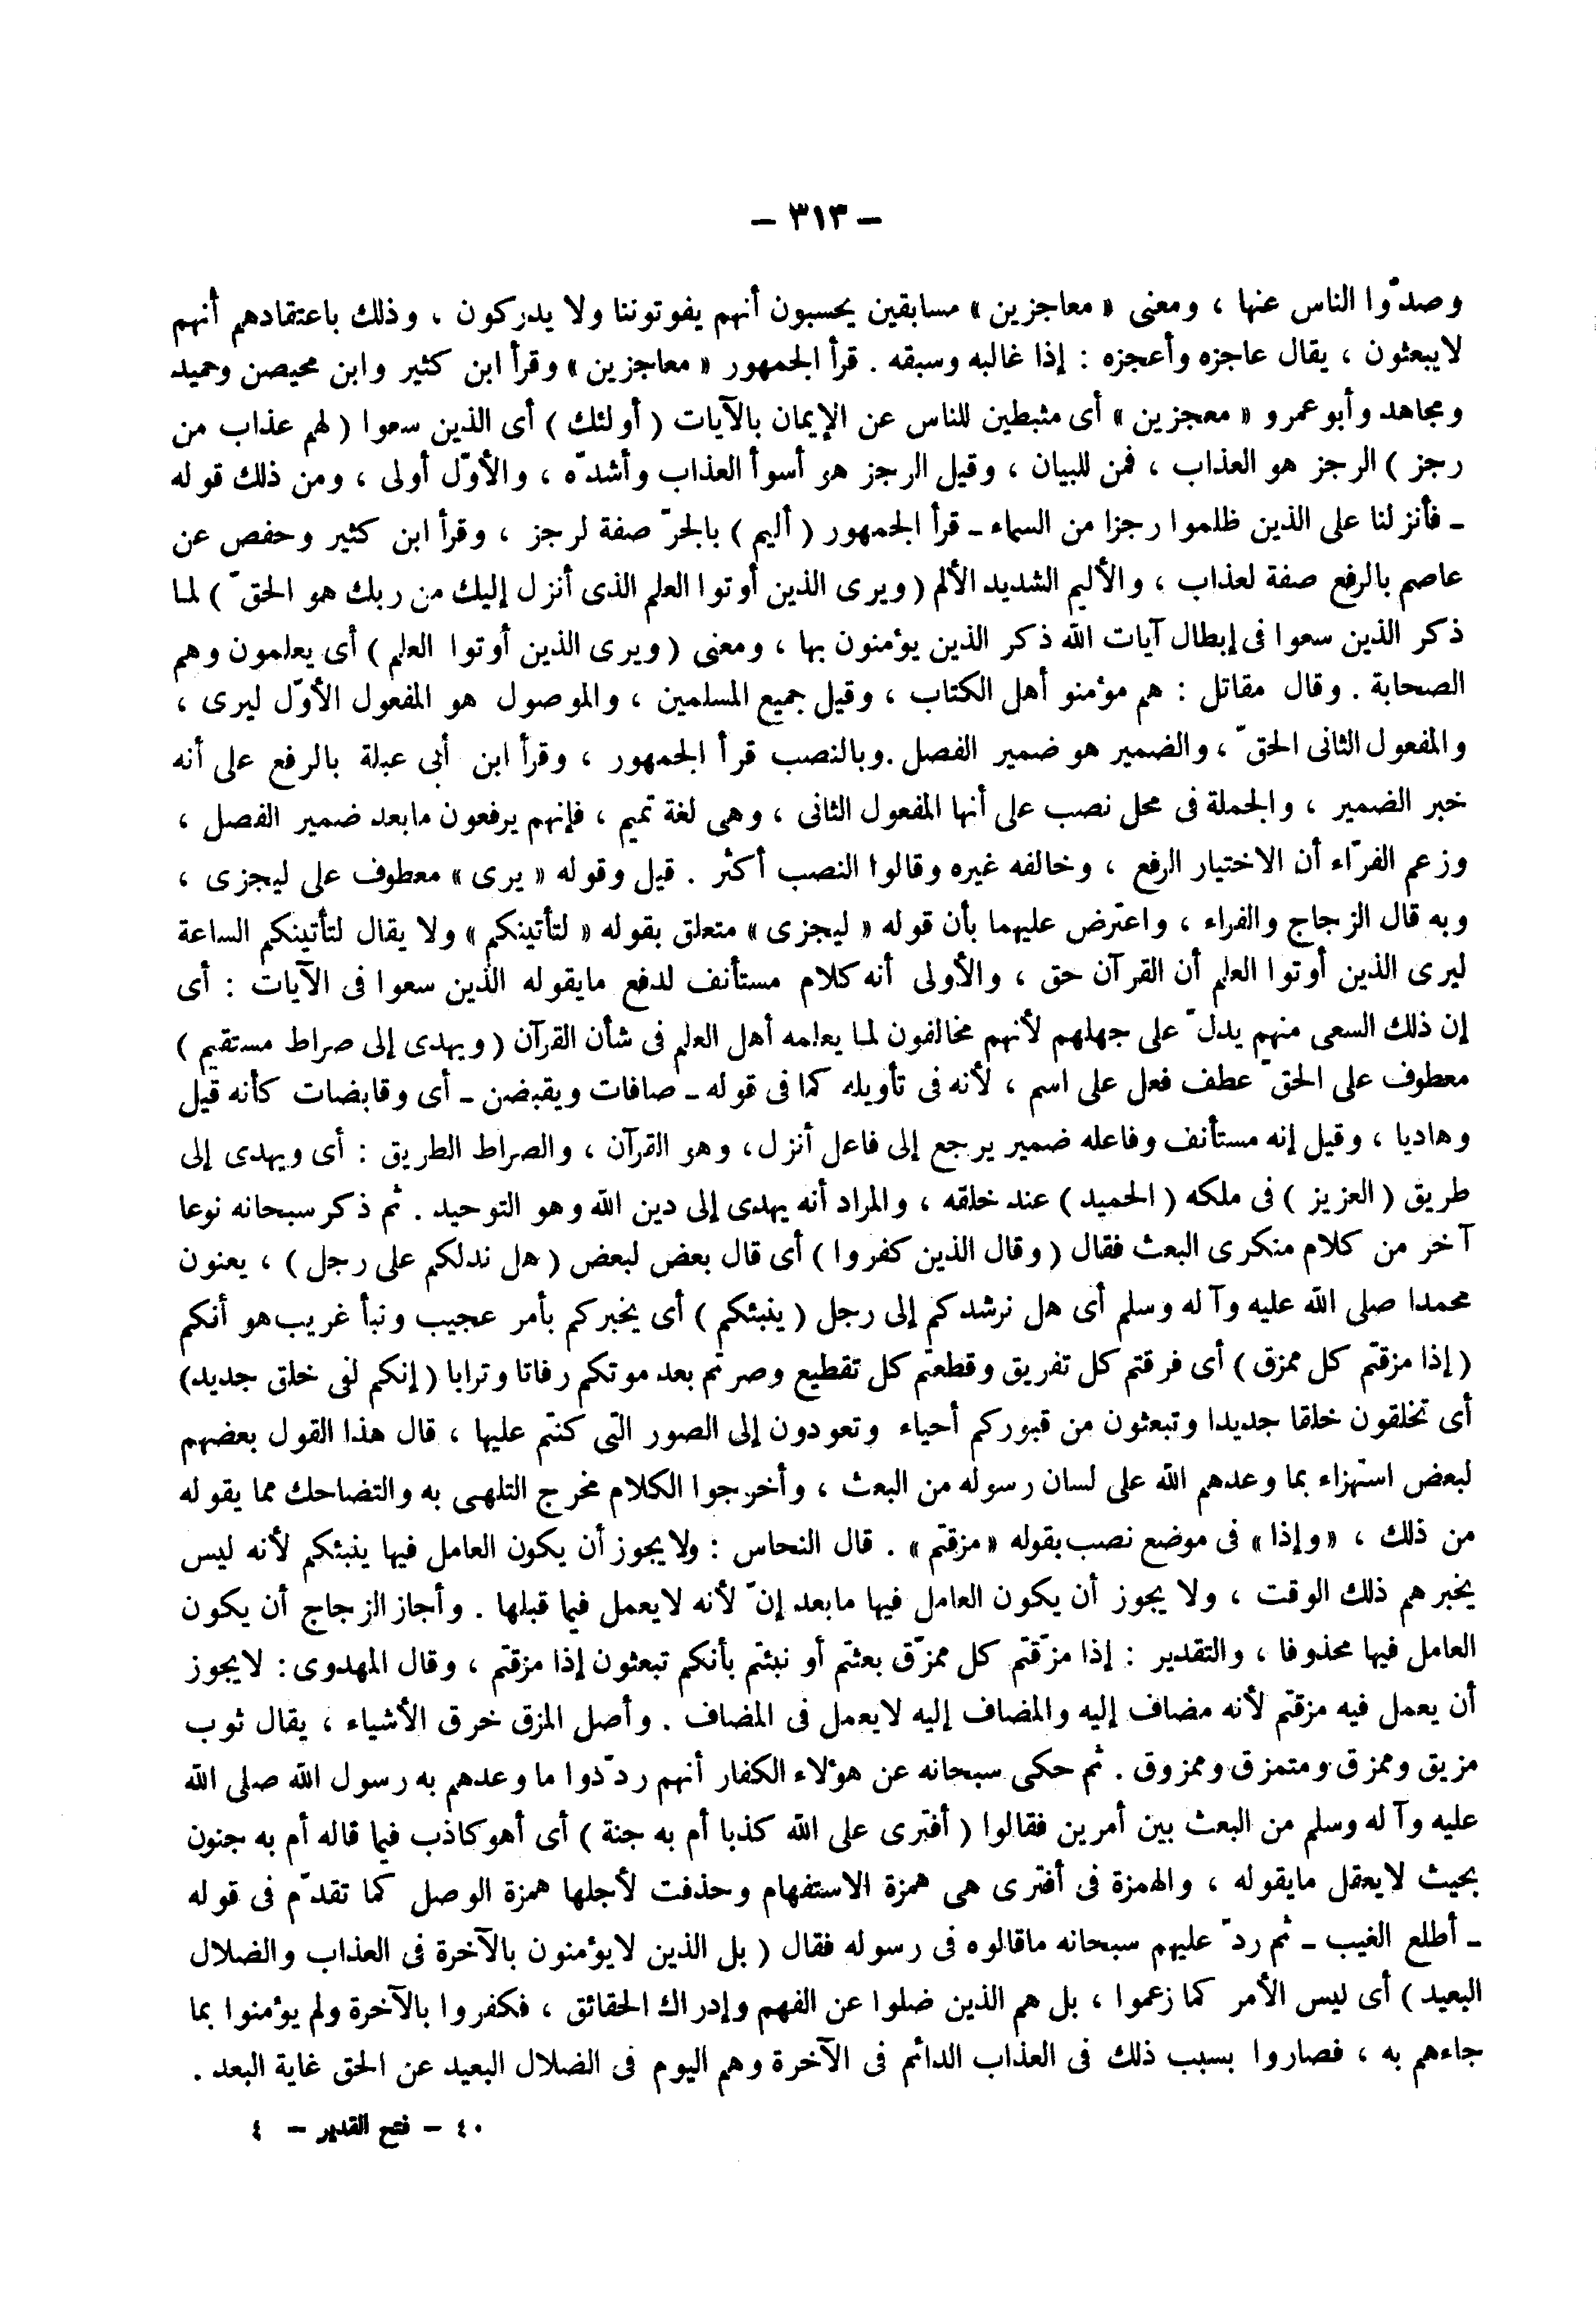 – ٣١٣ –
وصدّوا الناس عنها ، ومعنى « معاجزين » مسابقين يحسبون أنهم يفوتوننا ولا يدركون ، وذلك باعتقادهم أنهم
لايبعثون ، يقال عاجزه وأعجزه : إذا غالبه وسبقه . قرأ الجمهور « معاجزين » وقرأ ابن كثير وابن محيصن وحميد
ومجاهد وأبو عمرو « معجزين » أى مثبطين للناس عن الإيمان بالآيات ( أولئك ) أى الذين سعوا ( لهم عذاب من
رجز ) الرجز هو العذاب ، فمن للبيان ، وقيل الرجز هو أسوأ العذاب وأشدّه ، والأوّل أولى ، ومن ذلك قوله
ـ فأنزلنا على الذين ظلموا رجزا من السماء ـ قرأ الجمهور ( أليم ) بالجرّ صفة لرجز ، وقرأ ابن كثير وحفص عن
عاصم بالرفع صفة لعذاب ، والأليم الشديد الألم ( ويرى الذين أوتوا العلم الذى أنزل إليك من ربك هو الحقّ ) لما
ذكر الذين سعوا فى إبطال آيات الله ذكر الذين يؤمنون بها ، ومعنى ( ويرى الذين أوتوا العلم ) أى يعلمون وهم
الصحابة . وقال مقاتل : هم مؤمنو أهل الكتاب ، وقيل جميع المسلمين ، والموصول هو المفعول الأوّل ليرى ،
والمفعول الثانى الحقّ ، والضمير هو ضمير الفصل . وبالنصب قرأ الجمهور ، وقرأ ابن أبى عبلة بالرفع على أنه
خبر الضمير ، والجملة فى محل نصب على أنها المفعول الثانى ، وهى لغة تميم ، فإنهم يرفعون مابعد ضمير الفصل ،
وزعم الفرّاء أن الاختيار الرفع ، وخالفه غيره وقالوا النصب أكثر . قيل وقوله « يرى » معطوف على ليجزى ،
وبه قال الزجاج والفراء ، واعترض عليهما بأن قوله « ليجزى » متعلق بقوله « لتأتينكم » ولا يقال لتأتينكم الساعة
ليرى الذين أوتوا العلم أن القرآن حق ، والأولى أنه كلام مستأنف لدفع مايقوله الذين سعوا فى الآيات : أى
إن ذلك السعى منهم يدلّ على جهلهم لأنهم مخالفون لما يعلمه أهل العلم فى شأن القرآن ( ويهدى إلى صراط مستقيم )
معطوف على الحقّ عطف فعل على اسم ، لأنه فى تأويله كما فى قوله ـ صافات ويقبضن ـ أى وقابضات كأنه قيل
وهاديا ، وقيل إنه مستأنف وفاعله ضمير يرجع إلى فاعل أنزل ، وهو القرآن ، والصراط الطريق : أى ويهدى إلى
طريق ( العزيز ) فى ملكه ( الحميد ) عند خلقه ، والمراد أنه يهدى إلى دين الله وهو التوحيد . ثم ذكر سبحانه نوعا
آخر من كلام منكرى البعث فقال ( وقال الذين كفروا ) أى قال بعض لبعض ( هل ندلكم على رجل ) ، يعنون
محمدا صلى الله عليه وآله وسلم أى هل نرشدكم إلى رجل ( ينبئكم ) أى يخبركم بأمر عجيب ونبأ غريب هو أنكم
( إذا مزقتم كل ممزق ) أى فرقتم كل تفريق وقطعتم كل تقطيع وصرتم بعد موتكم رفاتا وترابا ( إنكم لفى خلق جديد )
أى تخلقون خلقا جديدا وتبعثون من قبوركم أحياء وتعودون إلى الصور التى كنتم عليها ، قال هذا القول بعضهم
لبعض استهزاء بما وعدهم الله على لسان رسوله من البعث ، وأخرجوا الكلام مخرج التلهى به والتضاحك مما يقوله
من ذلك ، « وإذا » فى موضع نصب بقوله « مزقتم » . قال النحاس : ولا يجوز أن يكون العامل فيها ينبئكم لأنه ليس
يخبرهم ذلك الوقت ، ولا يجوز أن يكون العامل فيها مابعد إنّ لأنه لايعمل فيما قبلها . وأجاز الزجاج أن يكون
العامل فيها محذوفا ، والتقدير : إذا مزّقتم كل ممزّق بعثتم أو نبئتم بأنكم تبعثون إذا مزقتم ، وقال المهدوى : لايجوز
أن يعمل فيه مزقتم لأنه مضاف إليه والمضاف إليه لايعمل فى المضاف . وأصل المزق خرق الأشياء ، يقال ثوب
مزيق وممزق ومتمزق وممزوق . ثم حكى سبحانه عن هؤلاء الكفار أنهم ردّدوا ما وعدهم به رسول الله صلى الله
عليه وآله وسلم من البعث بين أمرين فقالوا ( أفترى على الله كذبا أم به جنة ) أى أهو كاذب فيما قاله أم به جنون
بحيث لايعقل مايقوله ، والهمزة فى أفترى هى همزة الاستفهام وحذفت لأجلها همزة الوصل كما تقدّم فى قوله
ـ أطلع الغيب ـ ثم ردّ عليهم سبحانه ماقالوه فى رسوله فقال ( بل الذين لايؤمنون بالآخرة فى العذاب والضلال
البعيد ) أى ليس الأمر كما زعموا ، بل هم الذين ضلوا عن الفهم وإدراك الحقائق ، فكفروا بالآخرة ولم يؤمنوا بما
جاءهم به ، فصاروا بسبب ذلك فى العذاب الدائم فى الآخرة وهم اليوم فى الضلال البعيد عن الحق غاية البعد .
٤٠ – فتح القدير – ٤